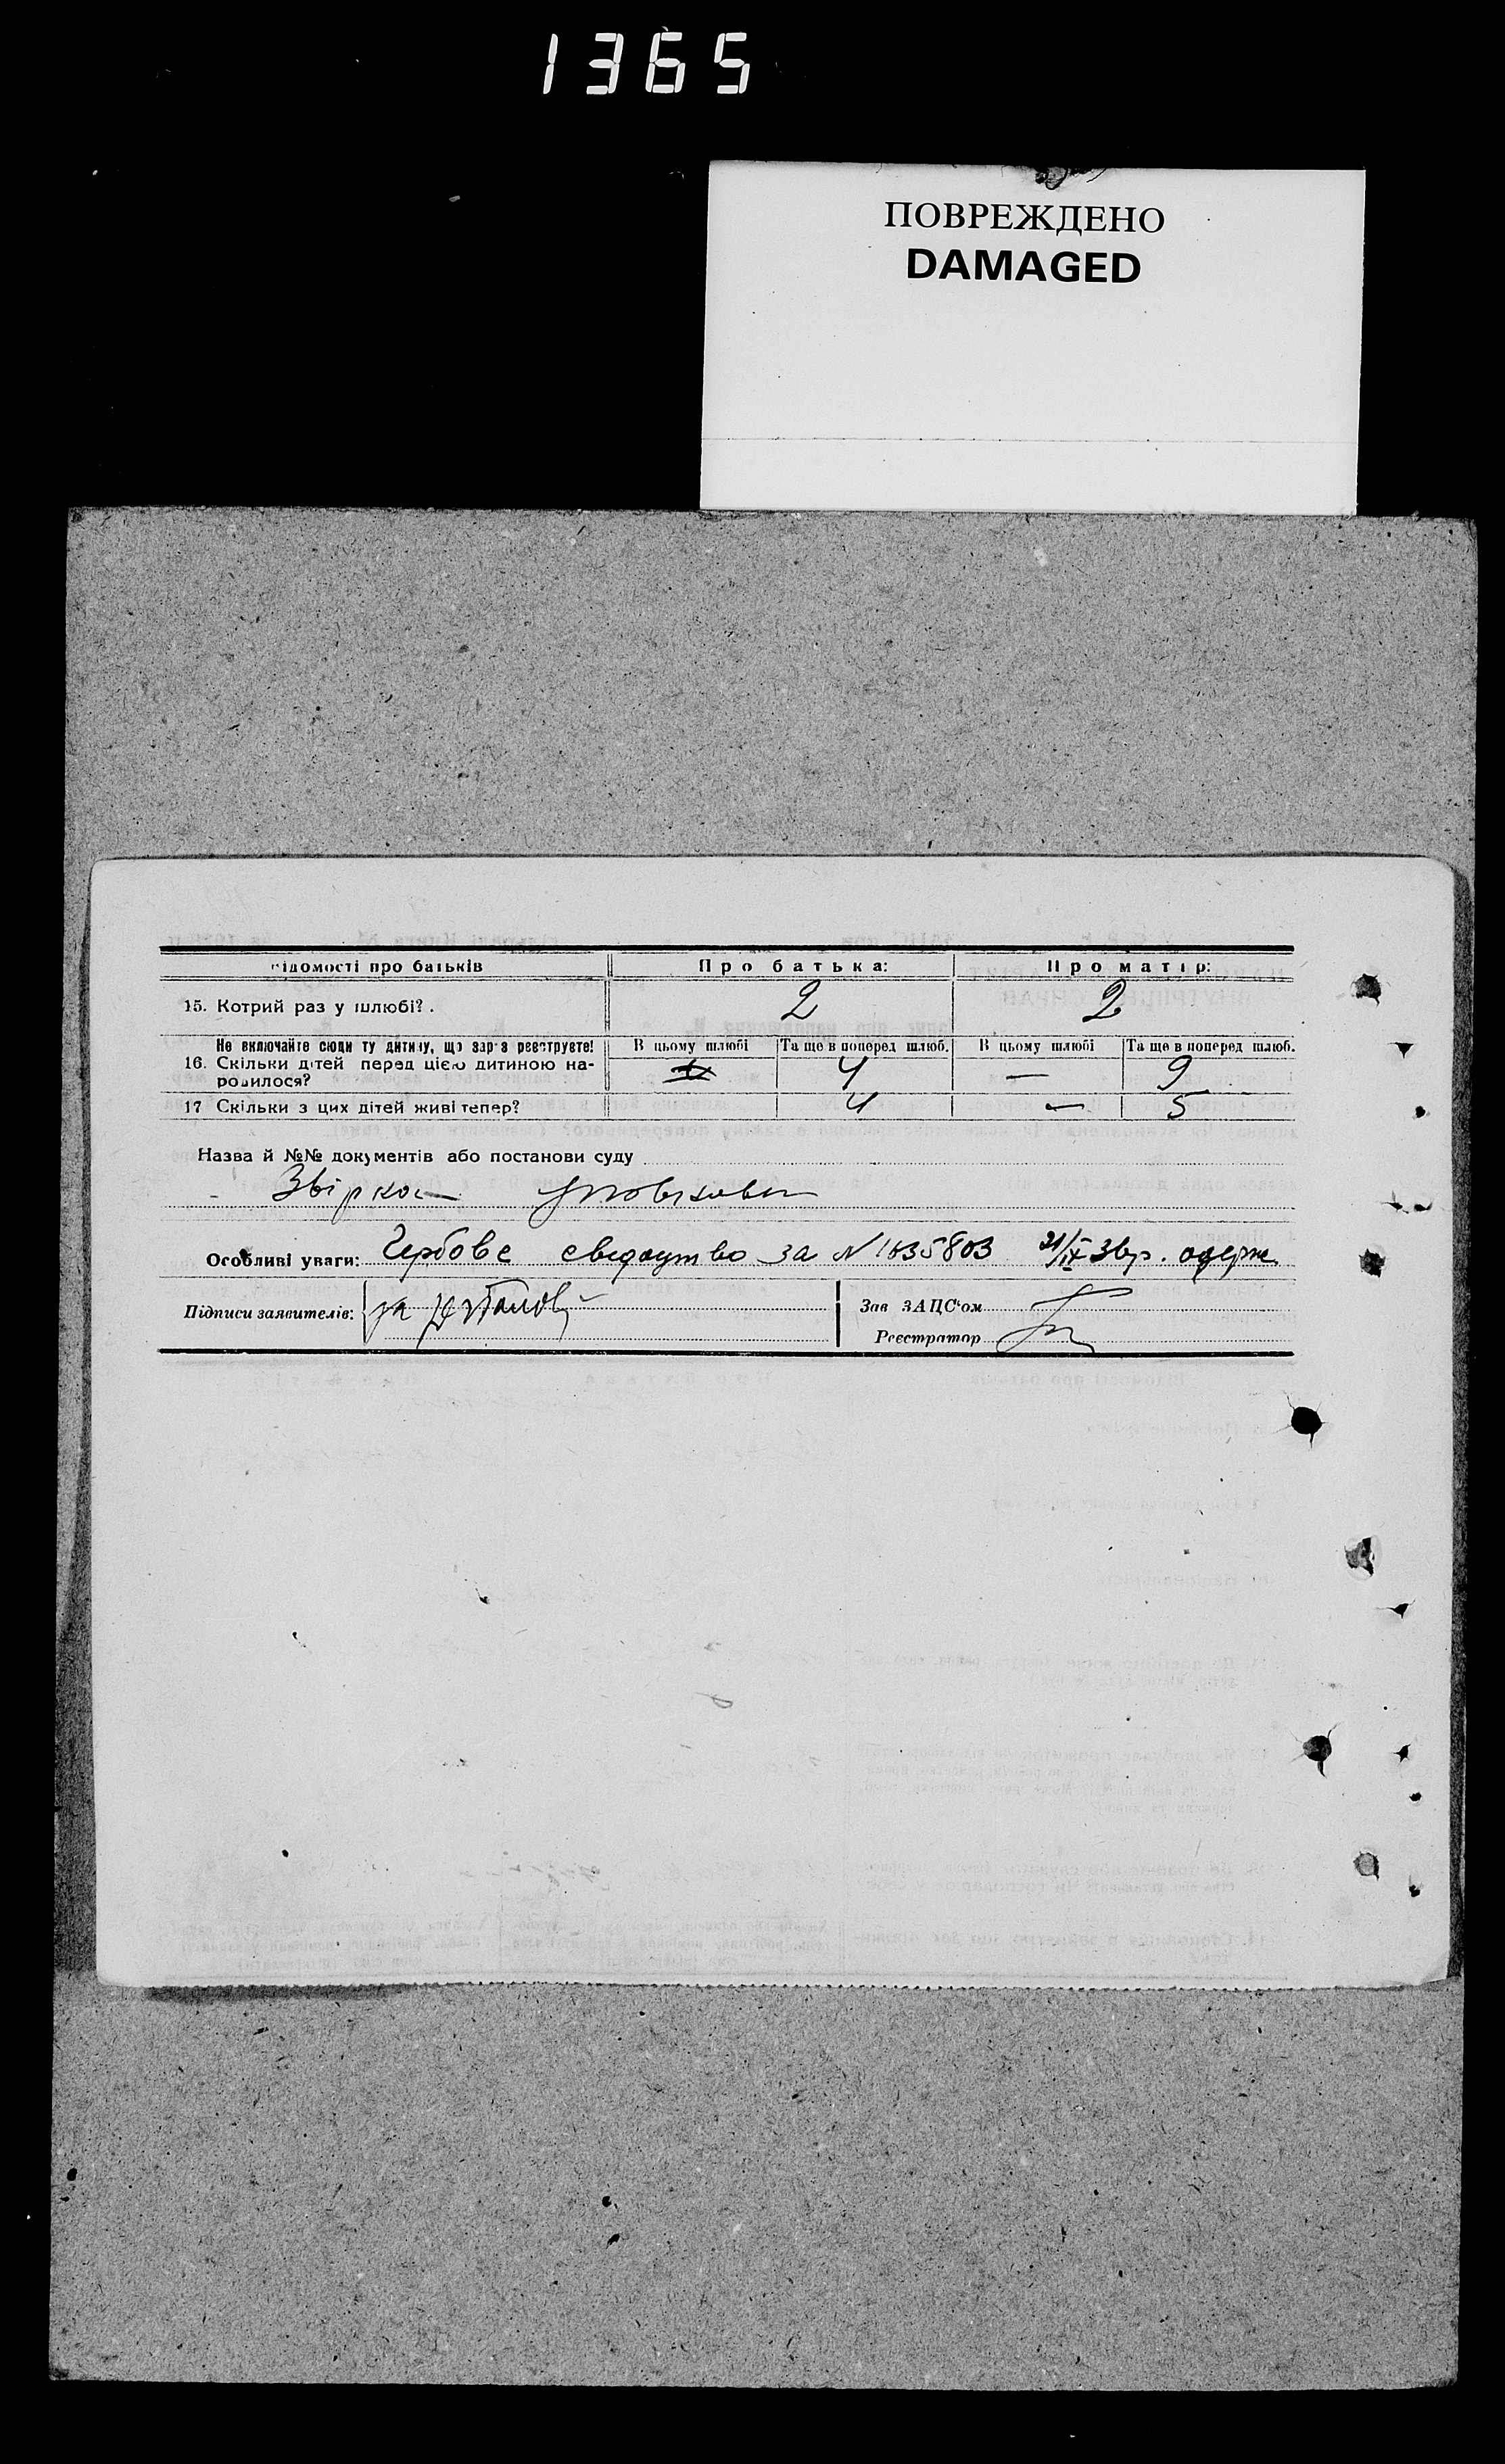 1365
ПОВРЕЖДЕНО
DAMAGED
відомості про батьків Про батька: Про матір:
15. Котрий раз у шлюбі? . 2 2
Не включайте сюди ту дитину, що зараз реєструєте! В цьому шлюбі Та ще в поперед шлюб. В цьому шлюбі Та ще в поперед шлюб.
16. Скільки дітей перед цією дитиною на- 4 — 9
родилося?
17 Скільки з цих дітей живі тепер? 4 — 5
Назва й №№ документів або постанови суду
Звірка
Особливі уваги: Гербове свідоцтво за N 1035803 21/IX Звір. одерж
Підписи заявителів: за Зав ЗАЦС'ом
Реєстратор